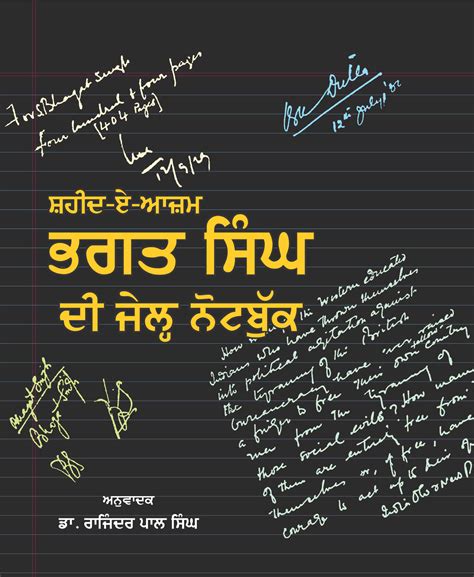 For S. Bhagat Singh
four hundred & four pages
[404 Pages]
12/9/29
B K Dutta
12th July/
ਸ਼ਹੀਦ-ਏ-ਆਜ਼ਮ
ਭਗਤ ਸਿੰਘ
ਦੀ ਜੇਲ੍ਹ ਨੋਟਬੁੱਕ
How many of the Western educated
Indians who have thrown themselves
into political agitation against
the tyranny of the British
bureaucracy have ever raised
a finger to free their own fellow
country
men from the tyranny of
those social evils? How many
of them are entirely free from
themselves or, if free, have
courage to act up to their
Bhagat Singh
Bhagat Singh
ਅਨੁਵਾਦਕ
ਡਾ. ਰਾਜਿੰਦਰ ਪਾਲ ਸਿੰਘ